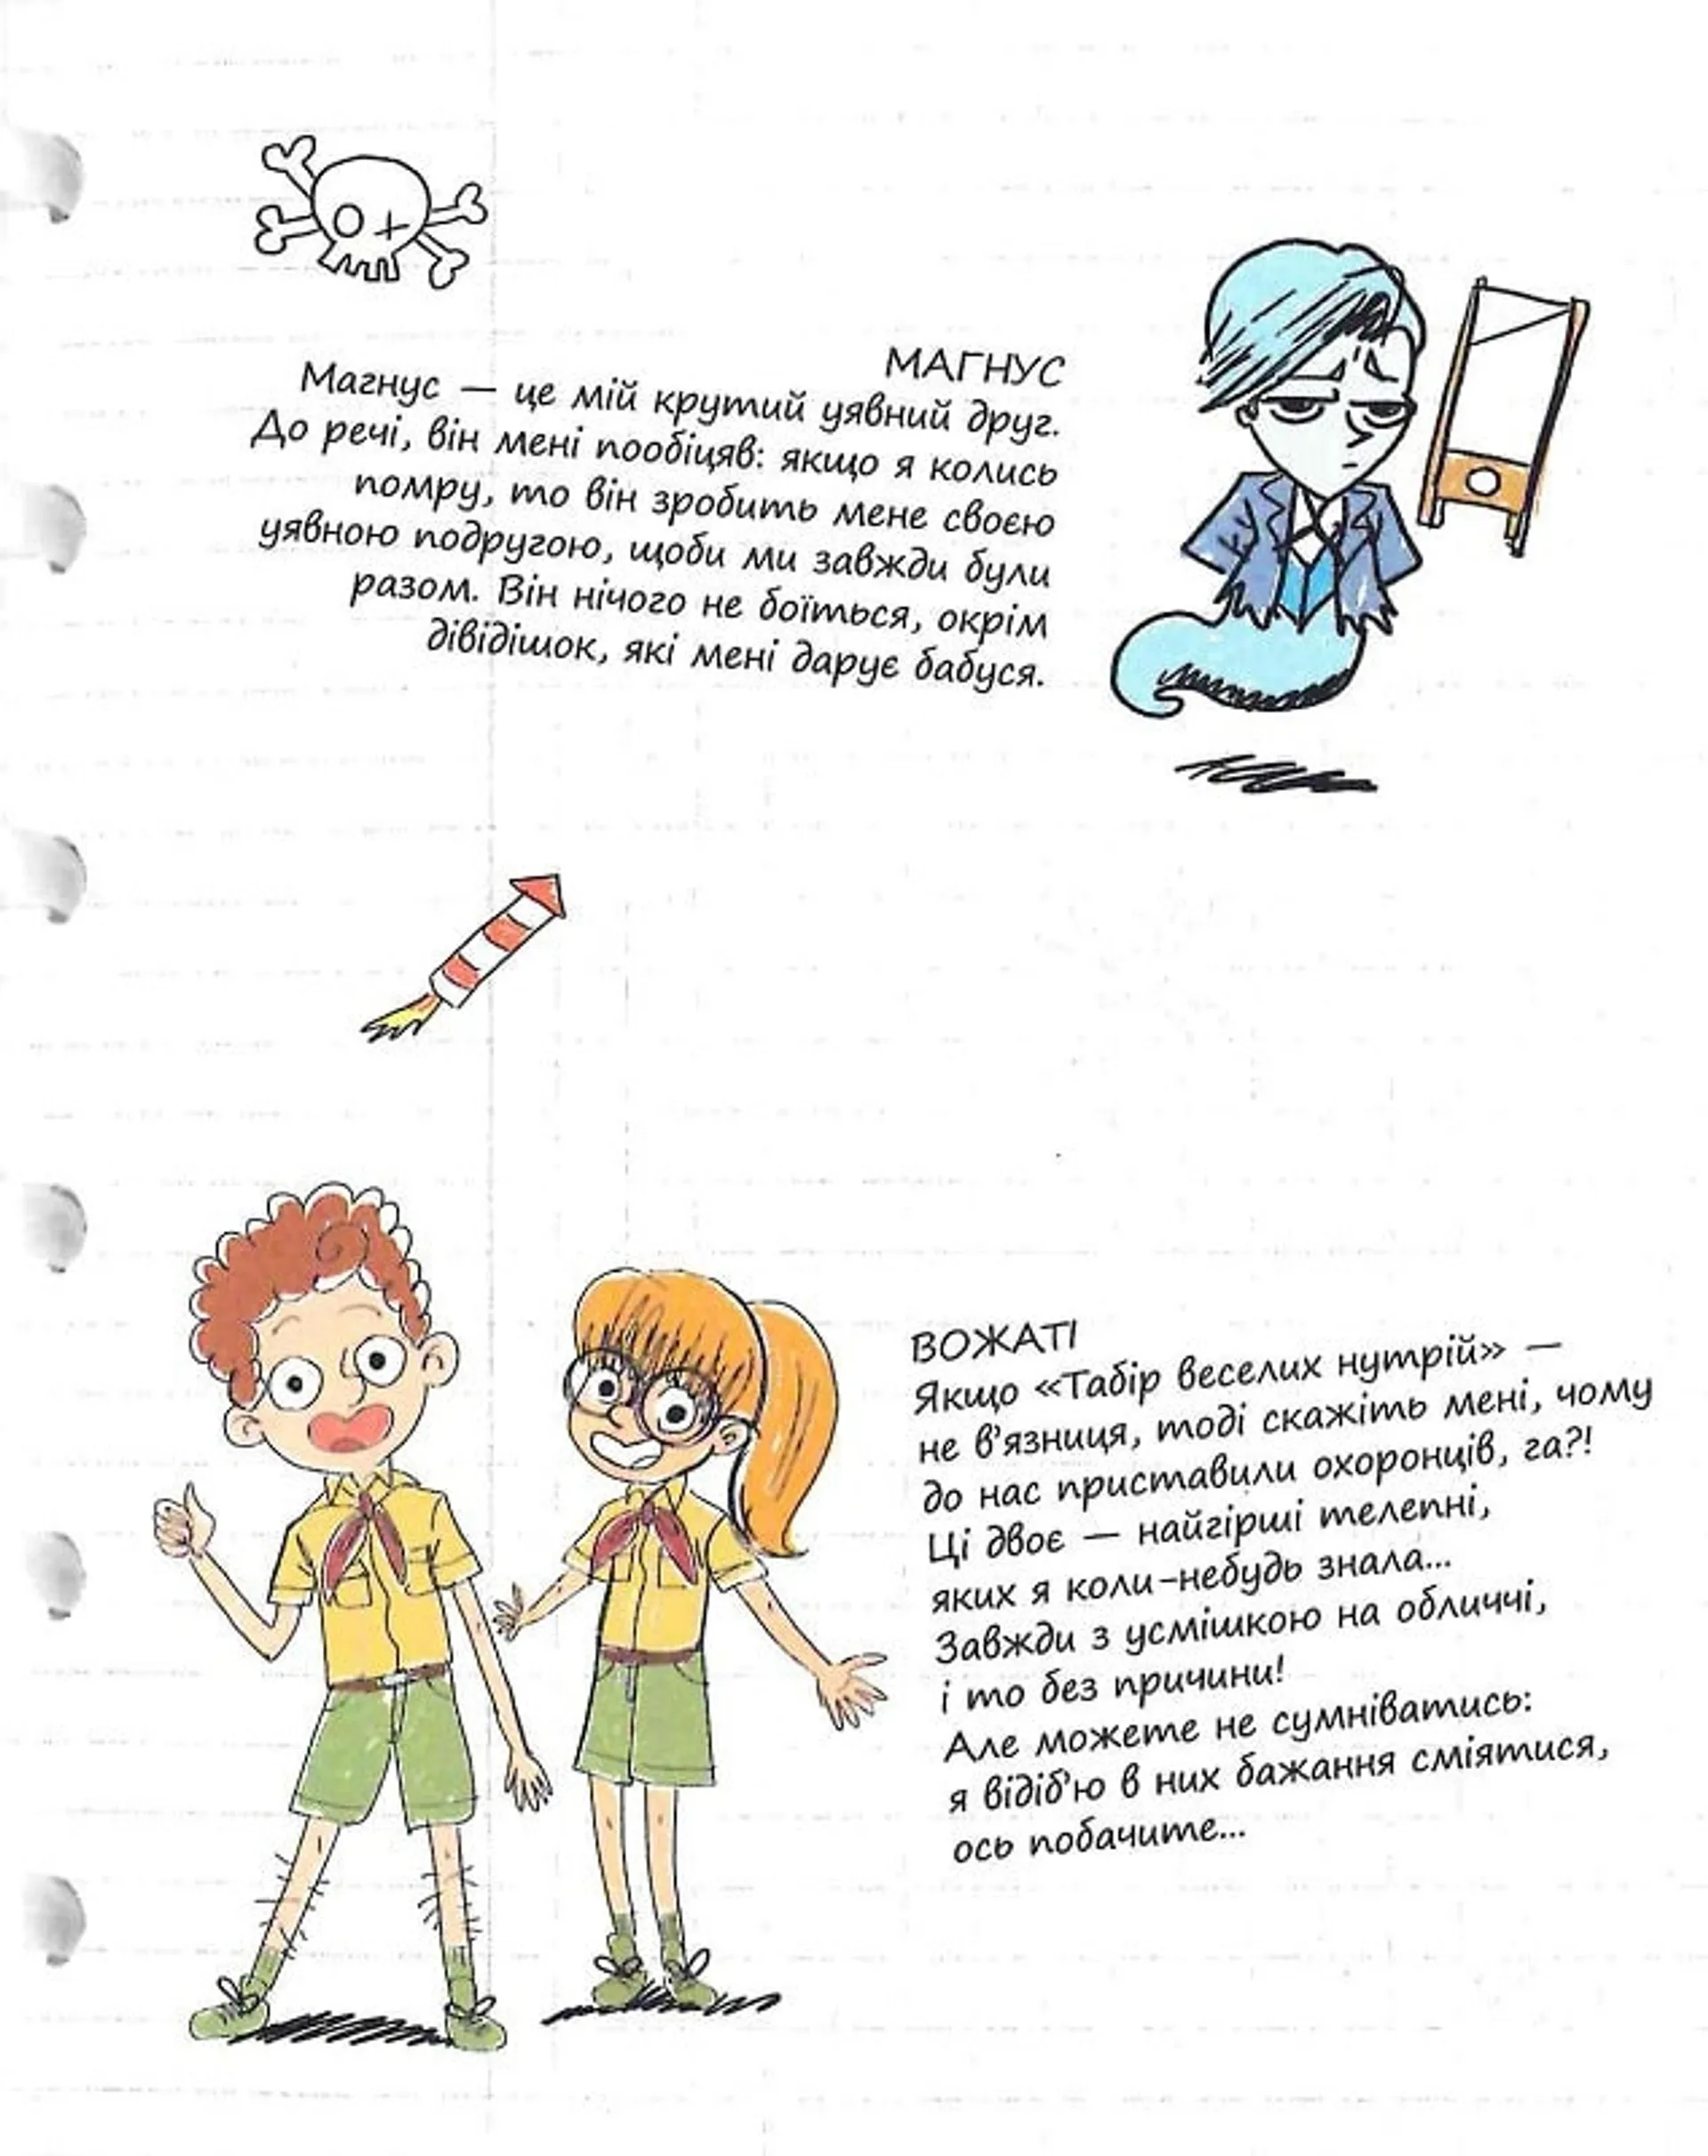 МАГНУС
Магнус — це мій крутий уявний друг.
До речі, він мені пообіцяв: якщо я колись
помру, то він зробить мене своєю
уявною подругою, щоби ми завжди були
разом. Він нічого не боїться, окрім
дівідішок, які мені дарує бабуся.
ВОЖАТІ
Якщо «Табір веселих нутрій» —
не в’язниця, тоді скажіть мені, чому
до нас приставили охоронців, га?!
Ці двоє — найгірші телепні,
яких я коли-небудь знала...
Завжди з усмішкою на обличчі,
і то без причини!
Але можете не сумніватись:
я відіб’ю в них бажання сміятися,
ось побачите...